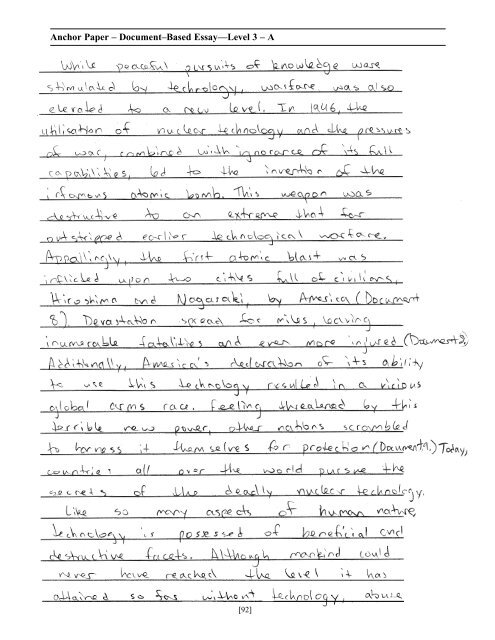 Anchor Paper – Document–Based Essay—Level 3 – A
While peaceful pursuits of knowledge were
stimulated by technology, warfare was also
elevated to a new level. In 1946, the
utilisation of nuclear technology and the pressures
of war, combined with ignorance of its full
capabilities, led to the invention of the
infamous atomic bomb. This weapon was
destructive to an extreme that far
outstripped earlier technological warfare.
Appallingly, the first atomic blast was
inflicted upon two cities full of civilians,
Hiroshima and Nagasaki, by America (Document
8) Devastation spread for miles, leaving
inumerable fatalities and even more injured (Document 8)
Additionally, America's declaration of its ability
to use this technology resulted in a vicious
global arms race. Feeling threatened by this
terrible new power, other nations scrambled
to harness it themselves for protection (Document 9.) Today,
countries all over the world pursue the
secrets of the deadly nuclear technology.
Like so many aspects of human nature,
technology is possesed of beneficial and
destructive facets. Although mankind could
never have reached the level it has
attained so far without technology, abuse
[92]